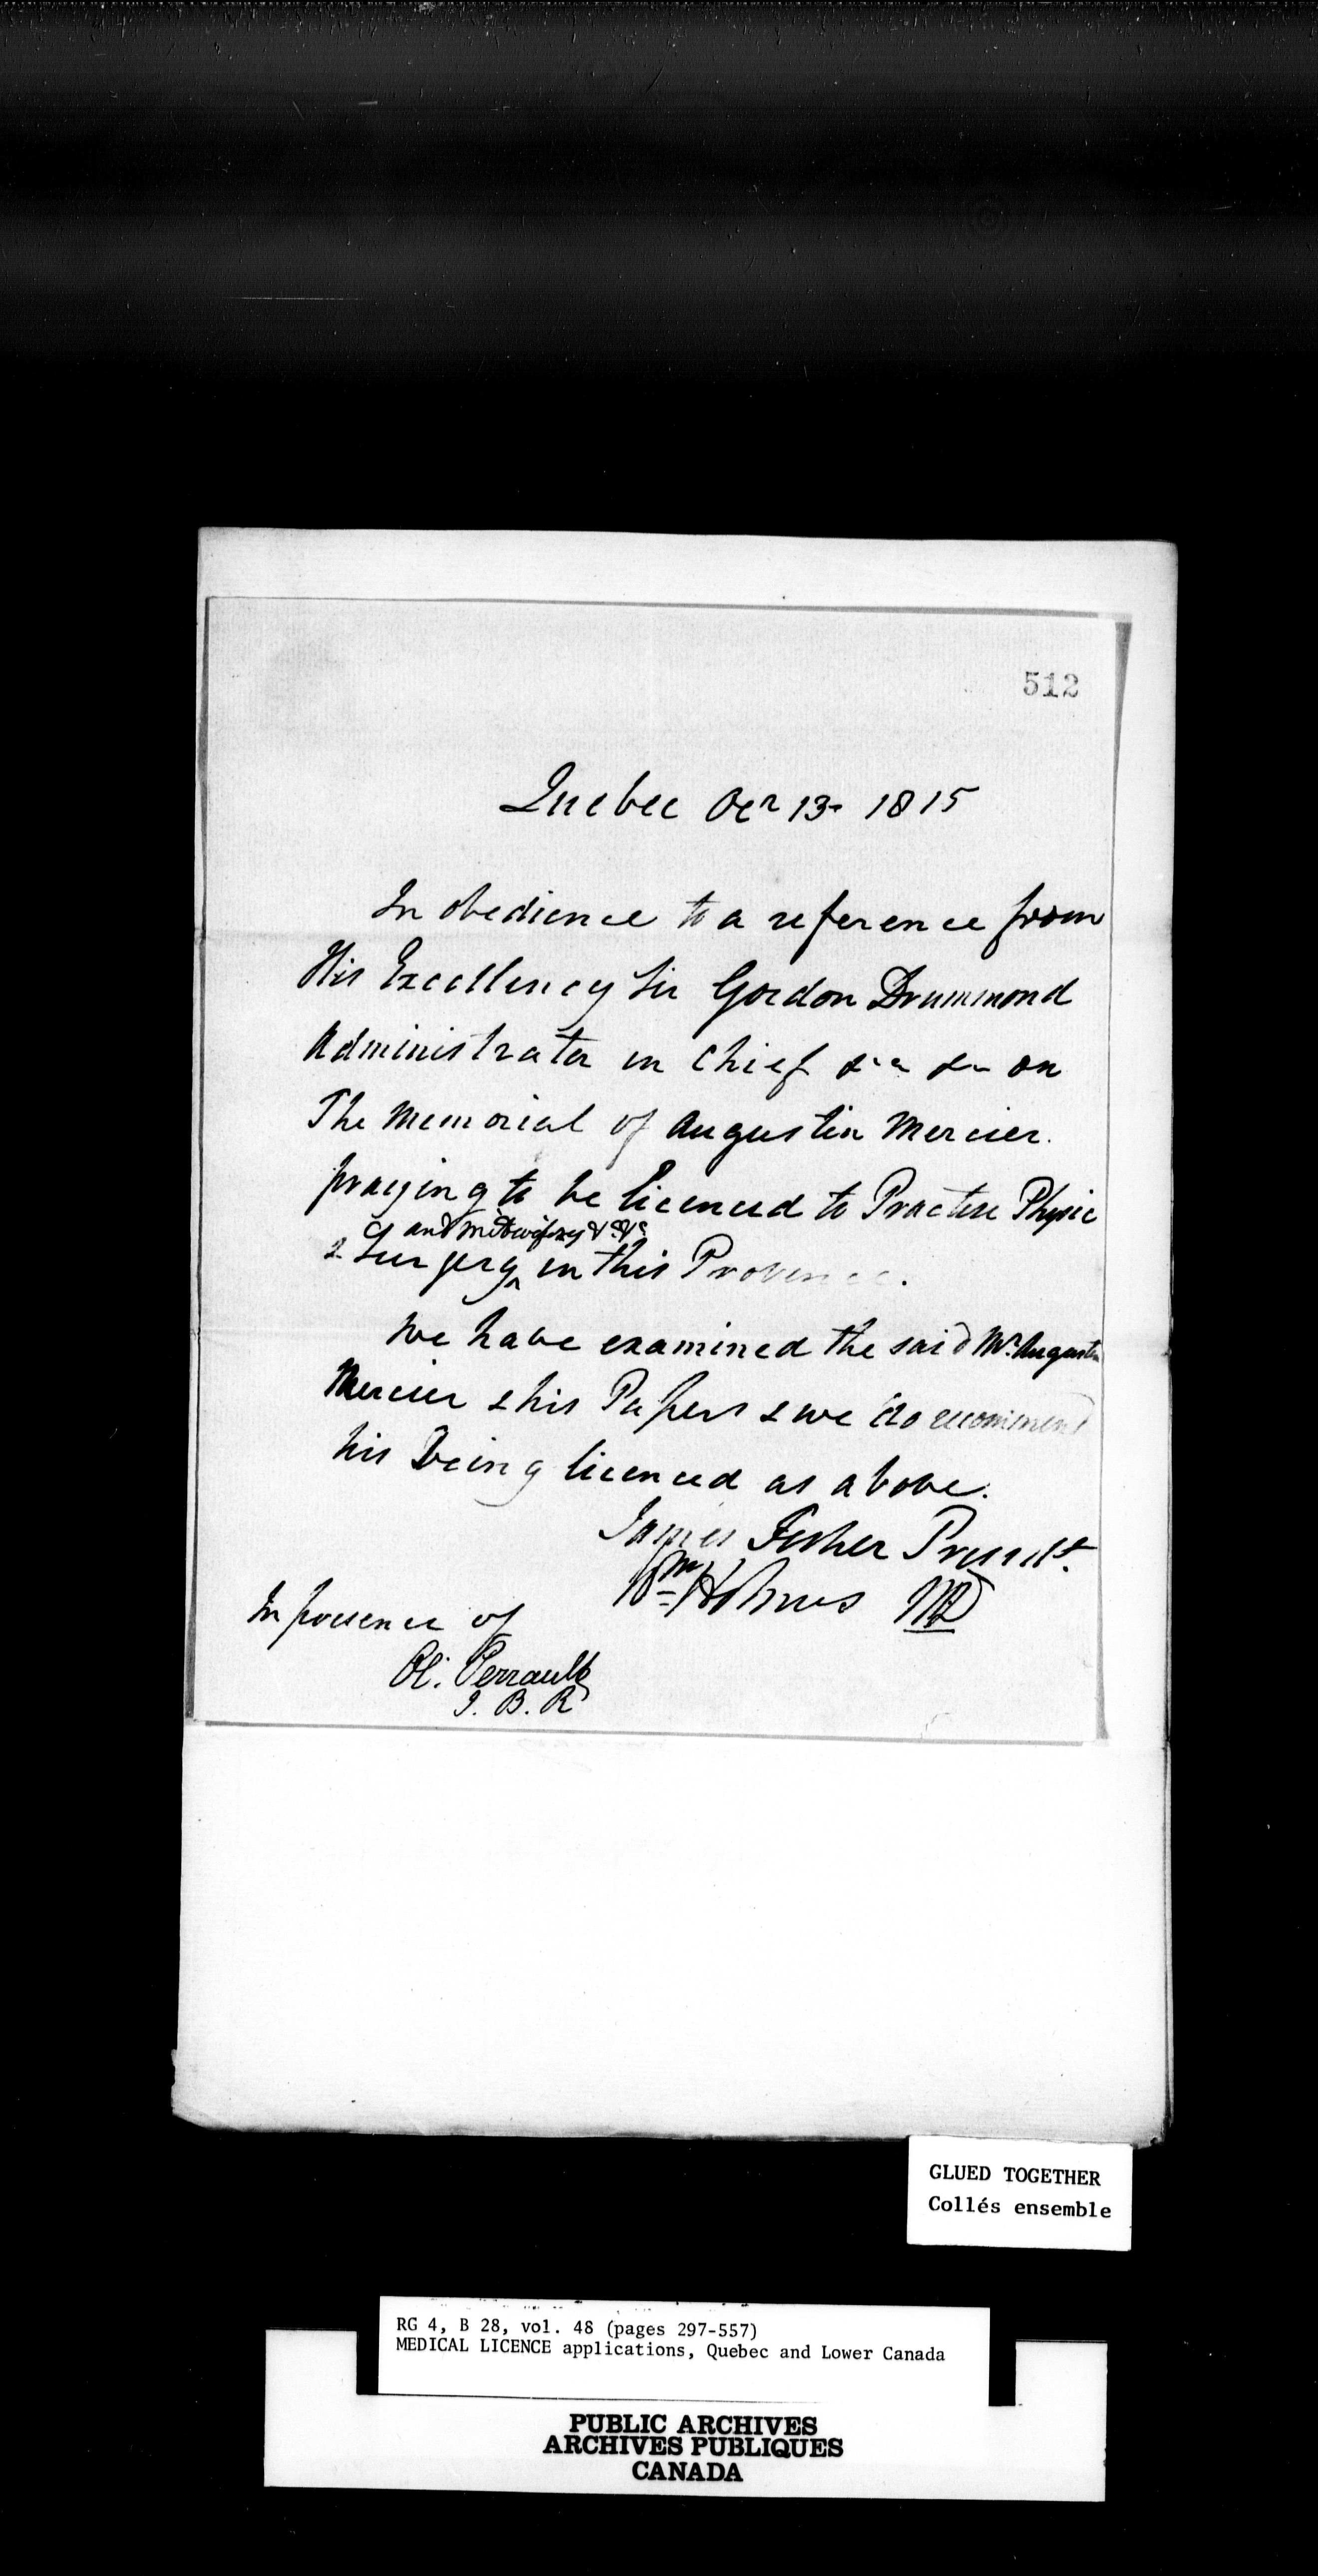 512
Quebec Oct 13. 1815
In obedience to a reference from
His Excellency Sir Gordon Drummond
Administrator in Chief &ca &ca on
The Memorial of Augustin Mercier.
praying to be licenced to Practise Physic
and Midwifery &c &c
& Surgery ^ in this Province.
We have examined the said Mr. Augustin
Mercier & his Papers & we do recommend
his being licenced as above.
James Fisher Presidt.
Wm Holmes MD
In presence of
Ol: Perrault
J. B. R
GLUED TOGETHER
Collés ensemble
RG 4, B 28, vol. 48 (pages 297-557)
MEDICAL LICENCE applications, Quebec and Lower Canada
PUBLIC ARCHIVES
ARCHIVES PUBLIQUES
CANADA